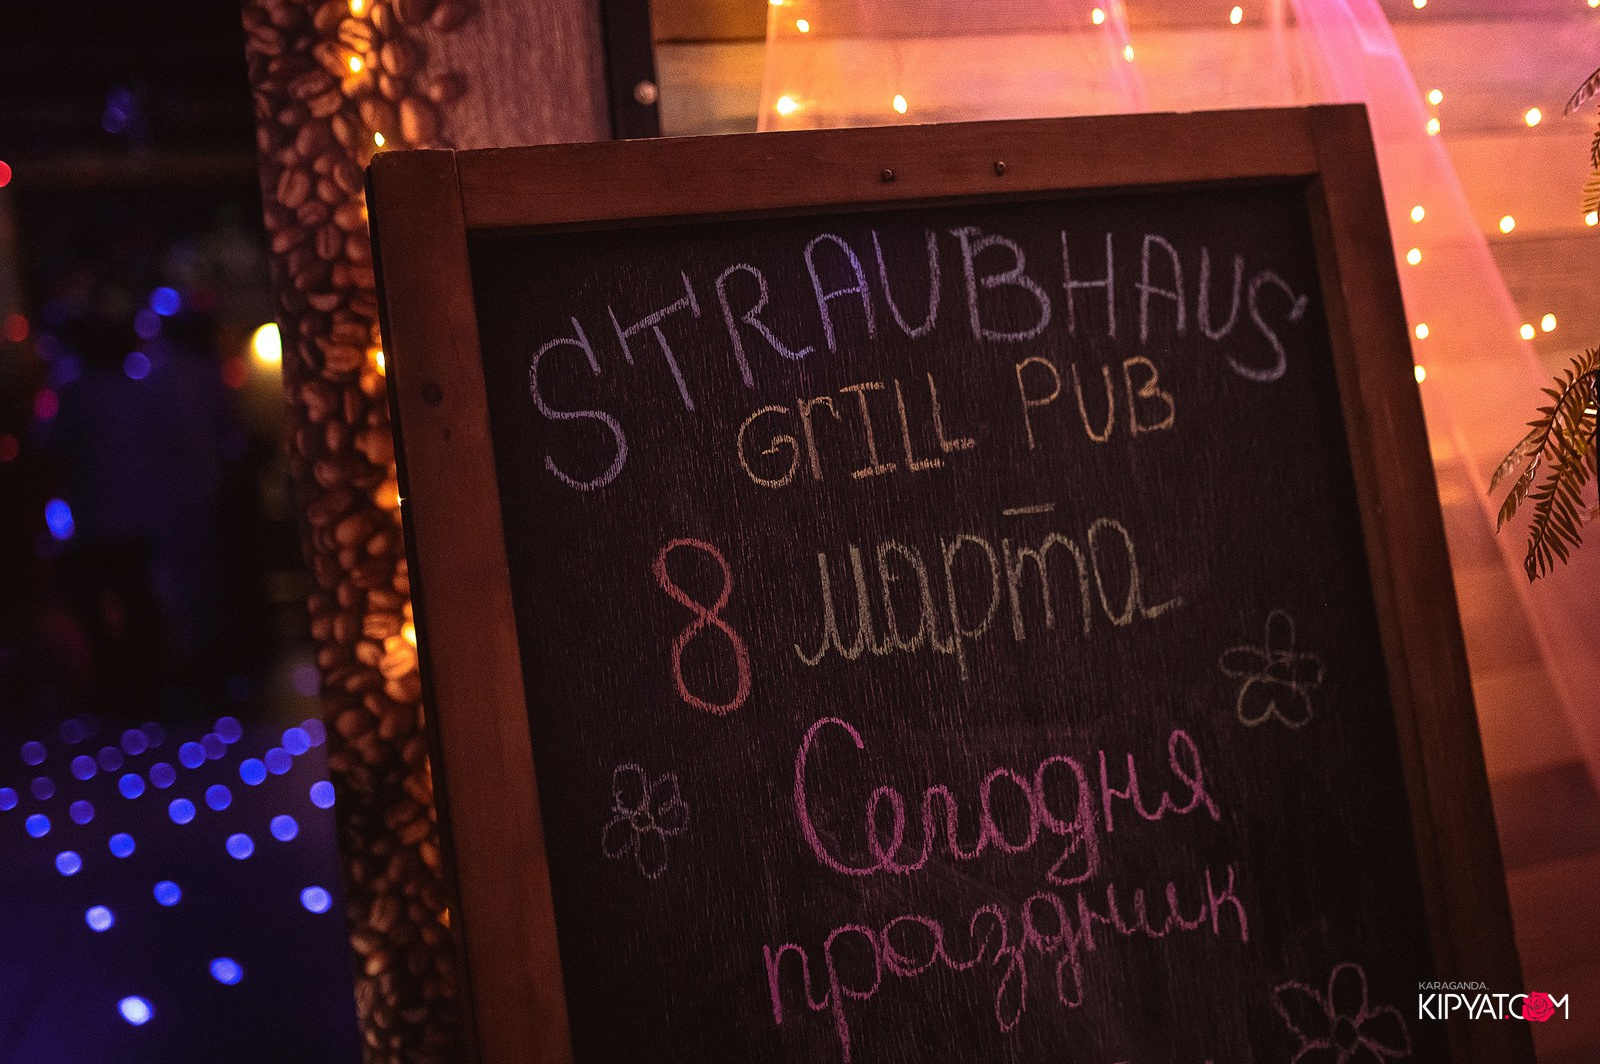 STRAUBHAUS
GrILL PUB
8 марта
Сегодня
праздник
KARAGANDA.
KIPYAT.COM